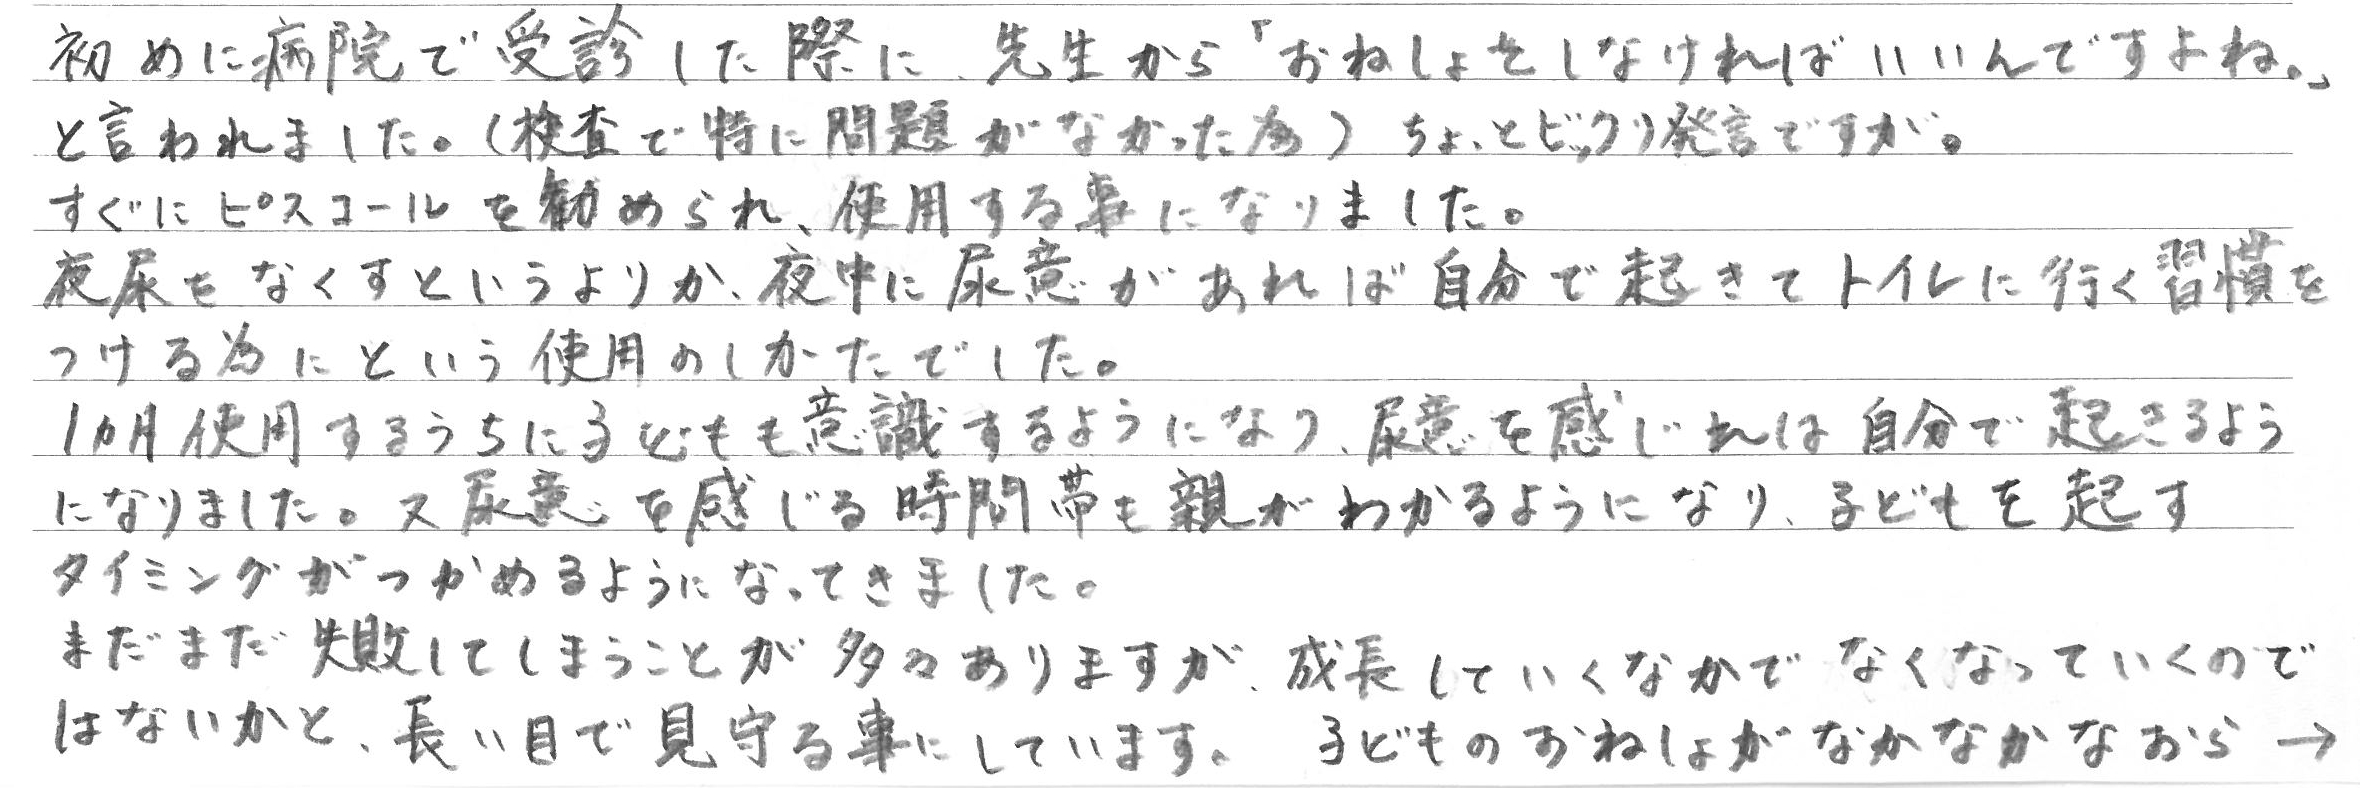 初めに病院で受診した際に、先生から「おねしょをしなければいいんですよね。」
と言われました。(検査で特に問題がなかった為) ちょっとビックリ発言ですが。
すぐにピスコールを勧められ、使用する事になりました。
夜尿をなくすというよりか、夜中に尿意があれば自分で起きてトイレに行く習慣を
つける為にという使用のしかたでした。
1ヵ月使用するうちに子どもも意識するようになり、尿意を感じれば自分で起きるよう
になりました。又尿意を感じる時間帯も親がわかるようになり、子どもを起す
タイミングがつかめるようになってきました。
まだまだ失敗してしまうことが多々ありますが、成長していくなかでなくなっていくので
はないかと、長い目で見守る事にしています。 子どものおねしょがなかなかなおら→